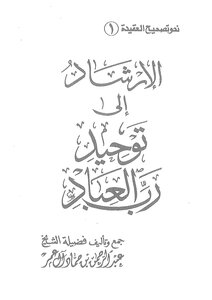 نحو تصحيح العقيدة (١)
الإرشاد
إلى
توحيد
رب العباد
جمع وتأليف فضيلة الشيخ
عبد الرحمن بن حماد آل عمر